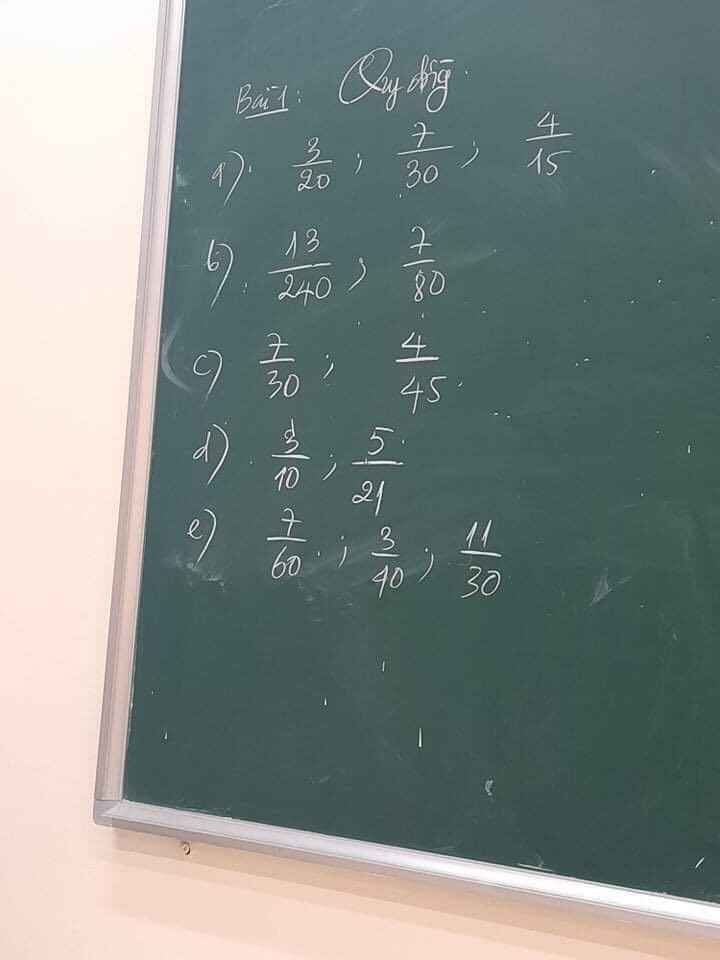 Bài 1: Quy đồng.
a) 3/20 ; 7/30 ; 4/15
b) 13/240 ; 7/80
c) 7/30 ; 4/45
d) 3/10 ; 5/21
e) 7/60 ; 3/40 ; 11/30